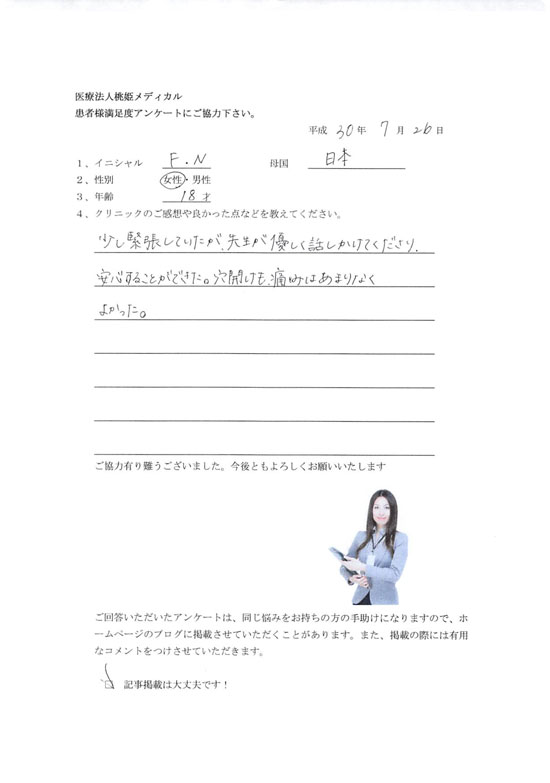 医療法人桃姫メディカル
患者様満足度アンケートにご協力下さい。
平成 30 年 7 月 26 日
1、イニシャル F.N 母国 日本
2、性別 女性・男性
3、年齢 18才
4、クリニックのご感想や良かった点などを教えてください。
少し緊張していたが、先生が優しく話しかけてくださり、
安心することができた。穴開けも、痛みはあまりなく
よかった。
ご協力有り難うございました。今後ともよろしくお願いいたします
ご回答いただいたアンケートは、同じ悩みをお持ちの方の手助けになりますので、ホ
ームページのブログに掲載させていただくことがあります。また、掲載の際には有用
なコメントをつけさせていただきます。
記事掲載は大丈夫です！